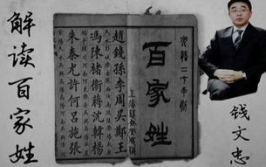 解读百家姓
趙錢孫李周吳鄭王
馮陳褚衛蔣沈韓楊
朱秦尤許何呂施張
百家姓
钱文忠